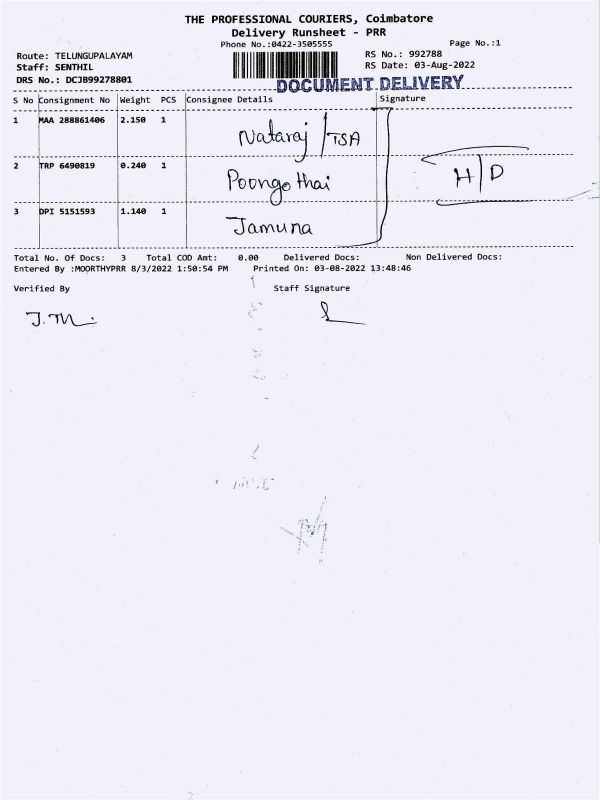 THE PROFESSIONAL COURIERS, Coimbatore
Delivery Runsheet - PRR
Phone No.:0422-3505555
Page No.:1
Route: TELUNGUPALAYAM
RS No.: 992788
Staff: SENTHIL
RS Date: 03-Aug-2022
DRS No.: DCJB99278801
DOCUMENT DELIVERY
S No Consignment No Weight PCS Consignee Details Signature
1 MAA 288861406 2.150 1 Nataraj / TSA
2 TRP 6490819 0.240 1 Poongothai H/D
3 DPI 5151593 1.140 1 Jamuna
Total No. Of Docs: 3 Total COD Amt: 0.00 Delivered Docs: Non Delivered Docs:
Entered By :MOORTHYPRR 8/3/2022 1:50:54 PM Printed On: 03-08-2022 13:48:46
Verified By Staff Signature
J.M.